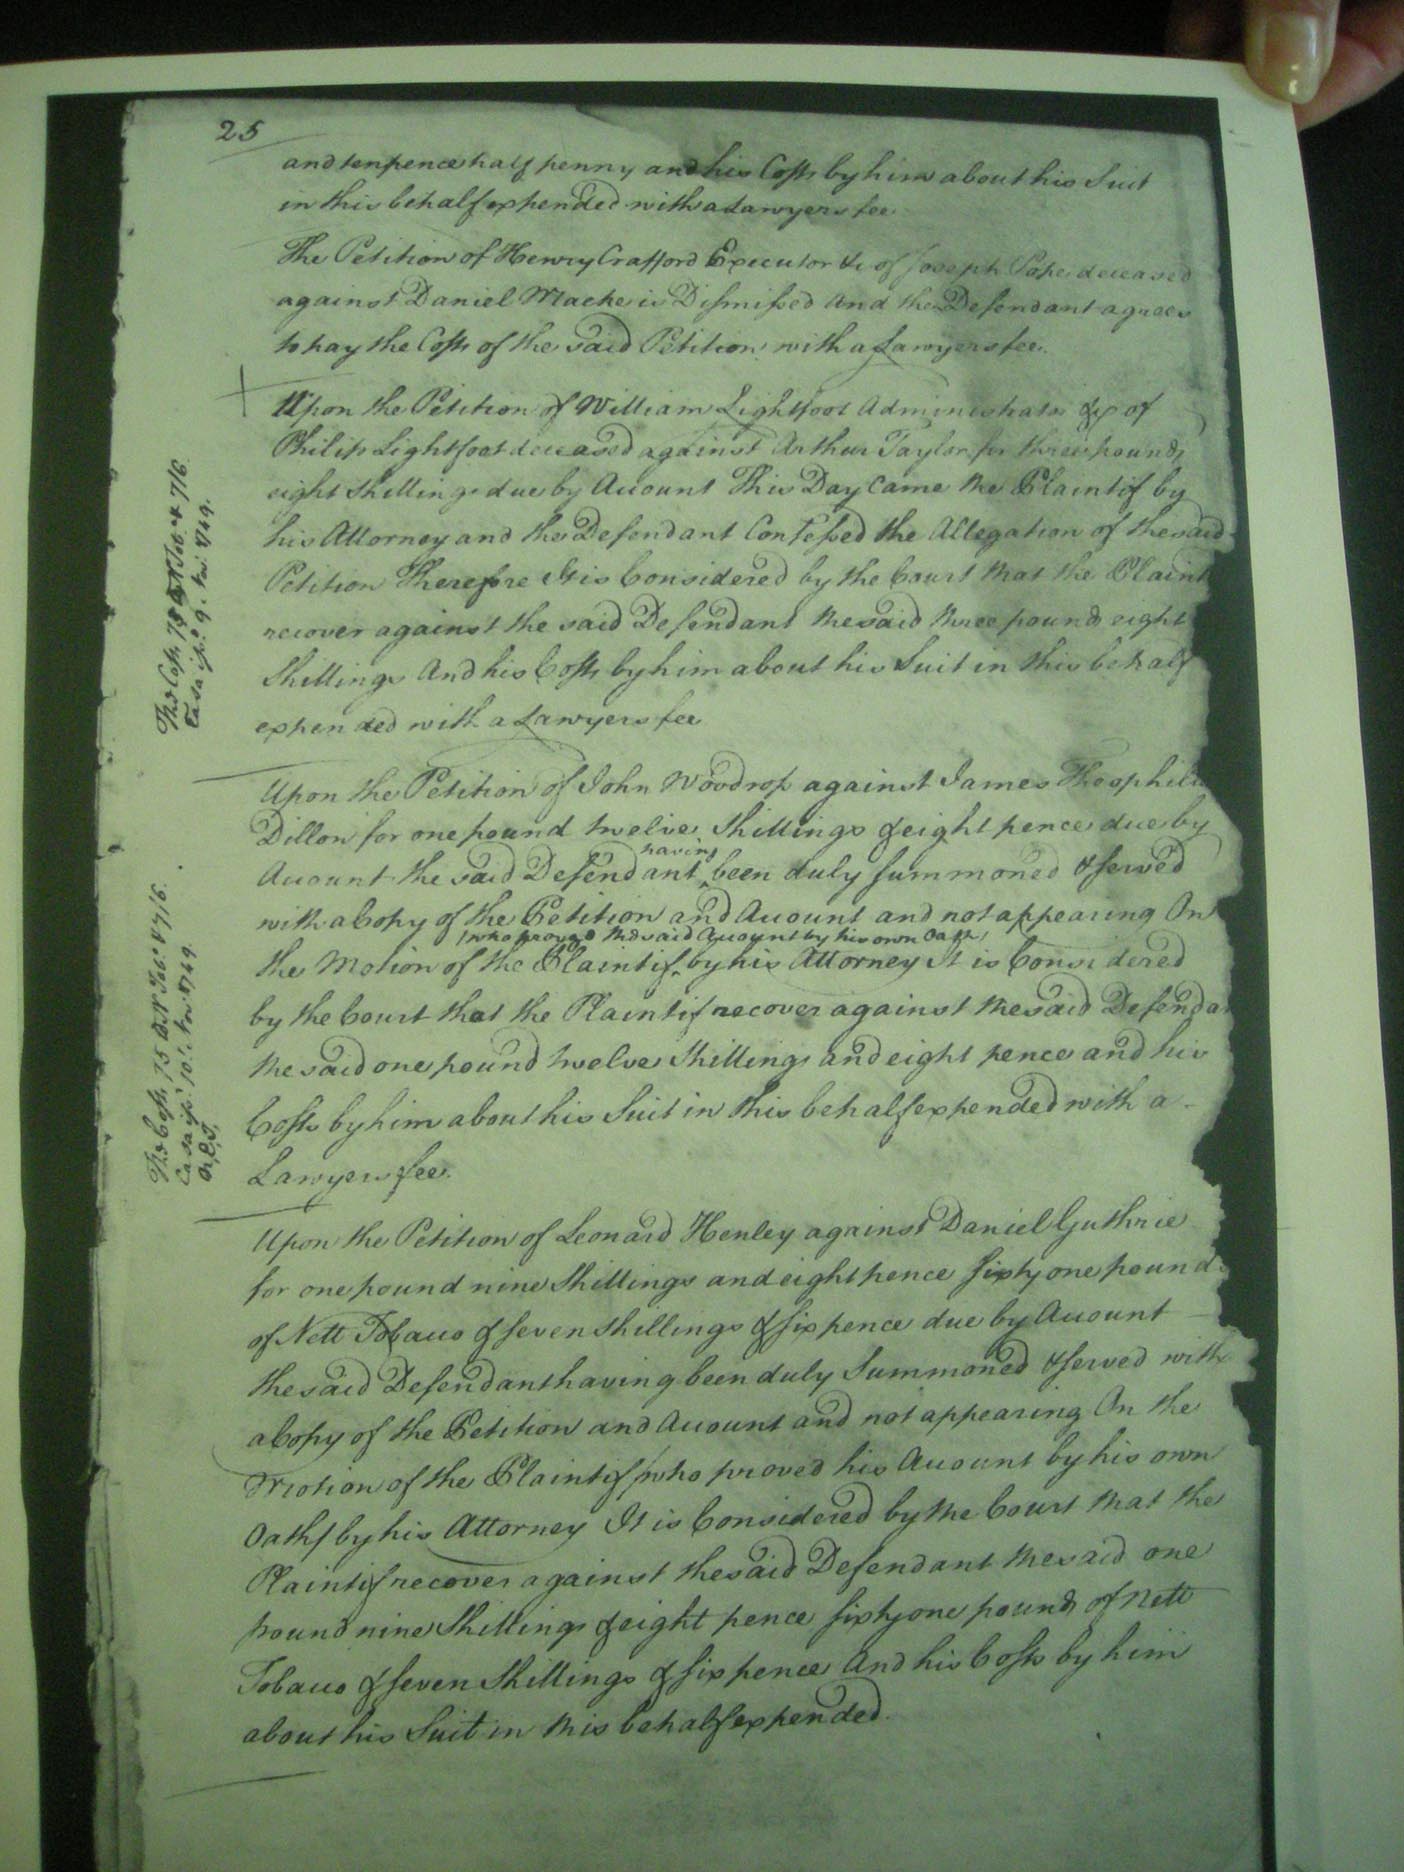 25
and tenpence half penny and his Costs by him about his Suit
in this behalf expended with a Lawyers fee
The Petition of Henry Crafford Executor &c of Joseph Pope deceased
against Daniel Macke is Dismissed And the Defendant agrees
to pay the Costs of the said Petition with a Lawyers fee.
Upon the Petition of William Lightfoot Administrator &c of
Philip Lightfoot deceased against Arthur Taylor for three pounds
eight Shillings due by Account This Day Came the Plaintif by
his Attorney and the Defendant Confessed the Allegation of the said
Petition Therefore It is Considered by the Court that the Plaint
recover against the said Defendant the said three pounds eight
Shillings And his Costs by him about his Suit in this behalf
expended with a Lawyers fee
Upon the Petition of John Woodrop against James Theophilu
Dillon for one pound twelve Shillings & eight pence due by
Account the said Defendant having been duly summoned & served
with a Copy of the Petition and Account and not appearing On
the Motion of the Plaintif (who proved the said Account by his own Oath) by his Attorney It is Considered
by the Court that the Plaintif recover against the said Defendan
the said one pound twelve Shillings and eight pence and his
Costs by him about his Suit in this behalf expended with a
Lawyers fee.
Upon the Petition of Leonard Henley against Daniel Guthrie
for one pound nine Shillings and eight pence sixty one pounds
of Nett Tobacco & seven Shillings & six pence due by Account
the said Defendant having been duly Summoned & served with
a Copy of the Petition and Account and not appearing On the
Motion of the Plaintif (who proved his Account by his own
Oath) by his Attorney It is Considered by the Court that the
Plaintif recover against the said Defendant the said one
pound nine Shillings & eight pence sixty one pounds of Nett
Tobacco & seven Shillings & six pence And his Costs by him
about his Suit in this behalf expended.
Costs 75
Ca sa 9. 1749.
Costs 75
Ca sa 1749